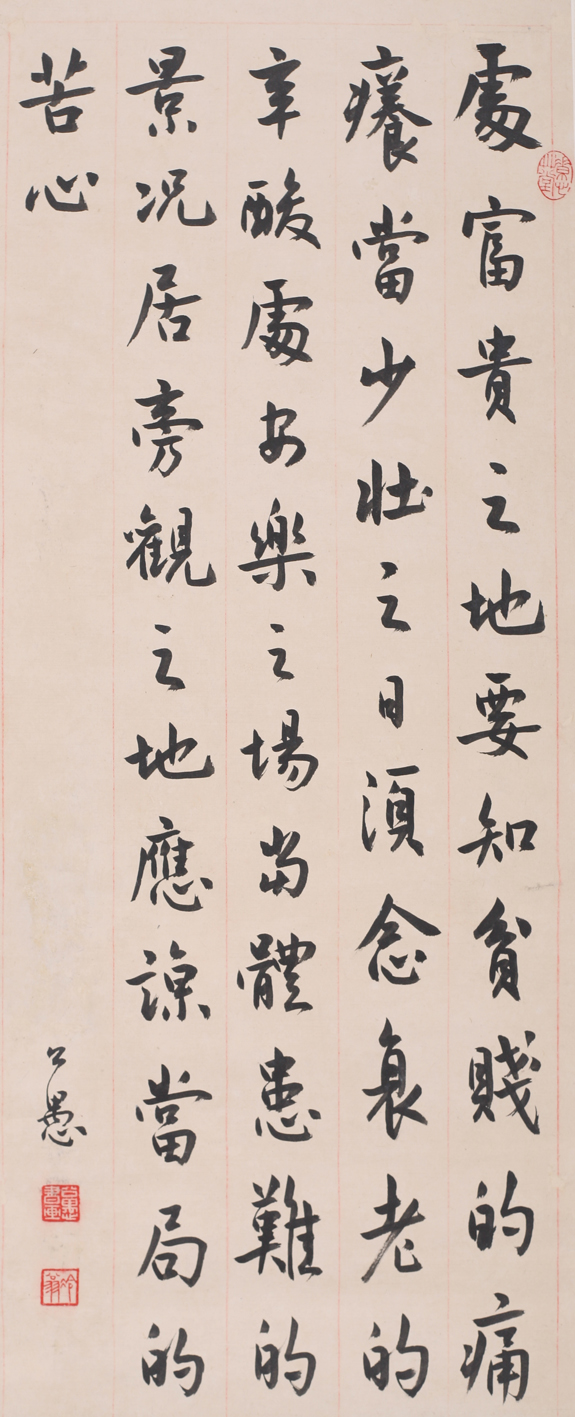 處富貴之地要知貧賤的痛
癢當少壯之日須念衰老的
辛酸處安樂之場当體患難的
景況居旁觀之地應諒當局的
苦心
公愚